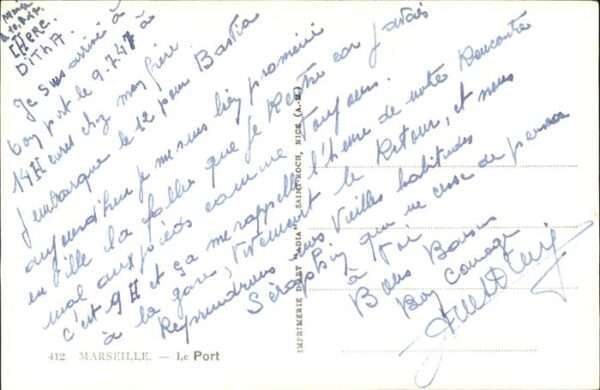 CHERE
DITHA.
Je suis arrivé à
bon port le 9.7.47 à
14 Heures chez mon frère
J'embarque le 12 pour Bastia
aujourd'hui je me suis bien promené
en ville la falle que je Reste car j'avais
mal aux pieds comme toujours.
c'est 9H et ça me rappelle l'heure de notre Rencontre
à la gare, vivement le Retour, et nous
Reprendrons nos vieilles habitudes
qui ne cesse de penser
à Toi
Bons Baisers
Bon Courage
IMPRIMERIE D'ART "ADIA" SAINT-ROCH, NICE (A.-M.)
412. MARSEILLE. — Le Port